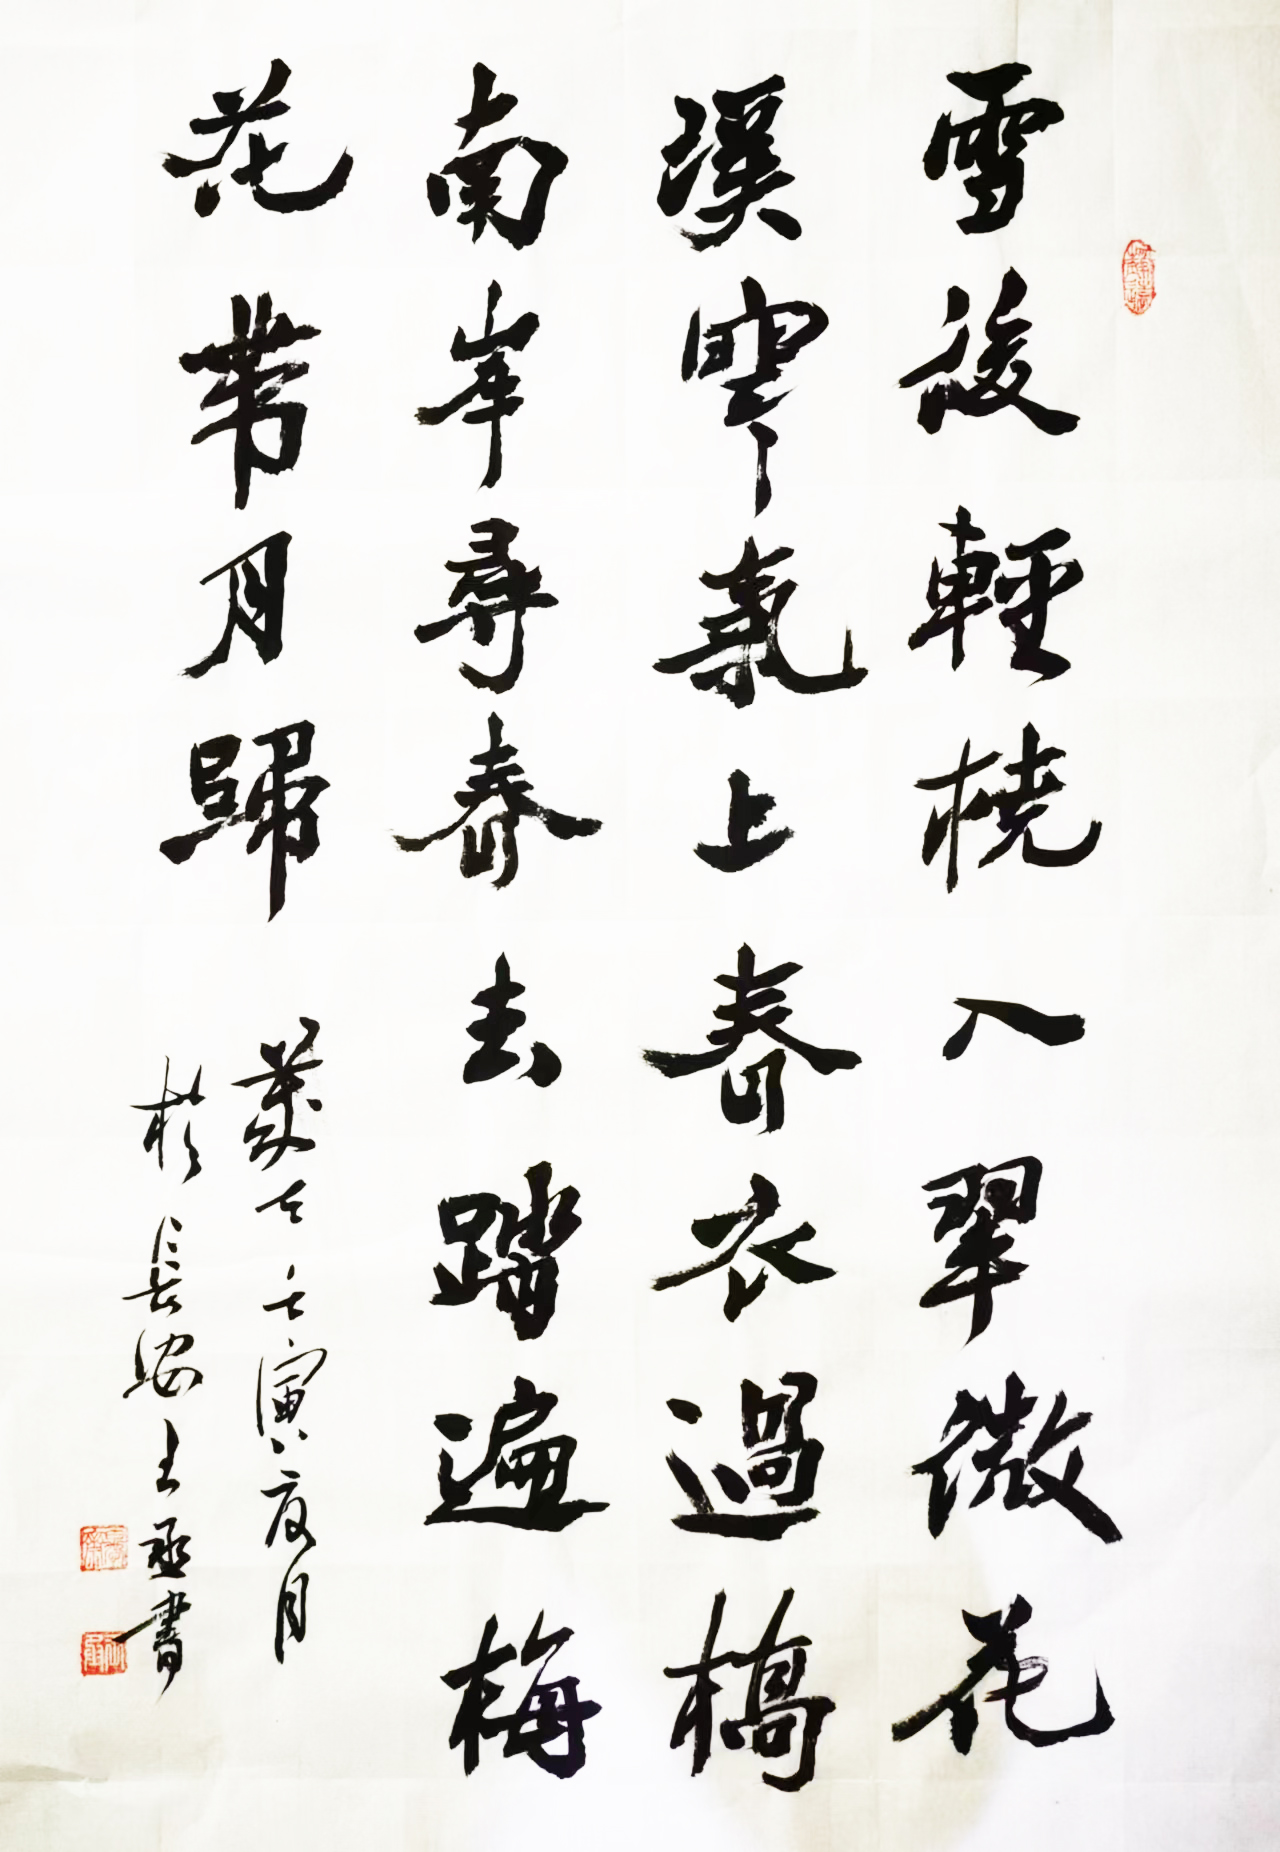 雪後輕橈入翠微花
溪寒氣上春衣過橋
南岸尋春去踏遍梅
花帶月歸
歲壬寅夏月
於長安王丞書